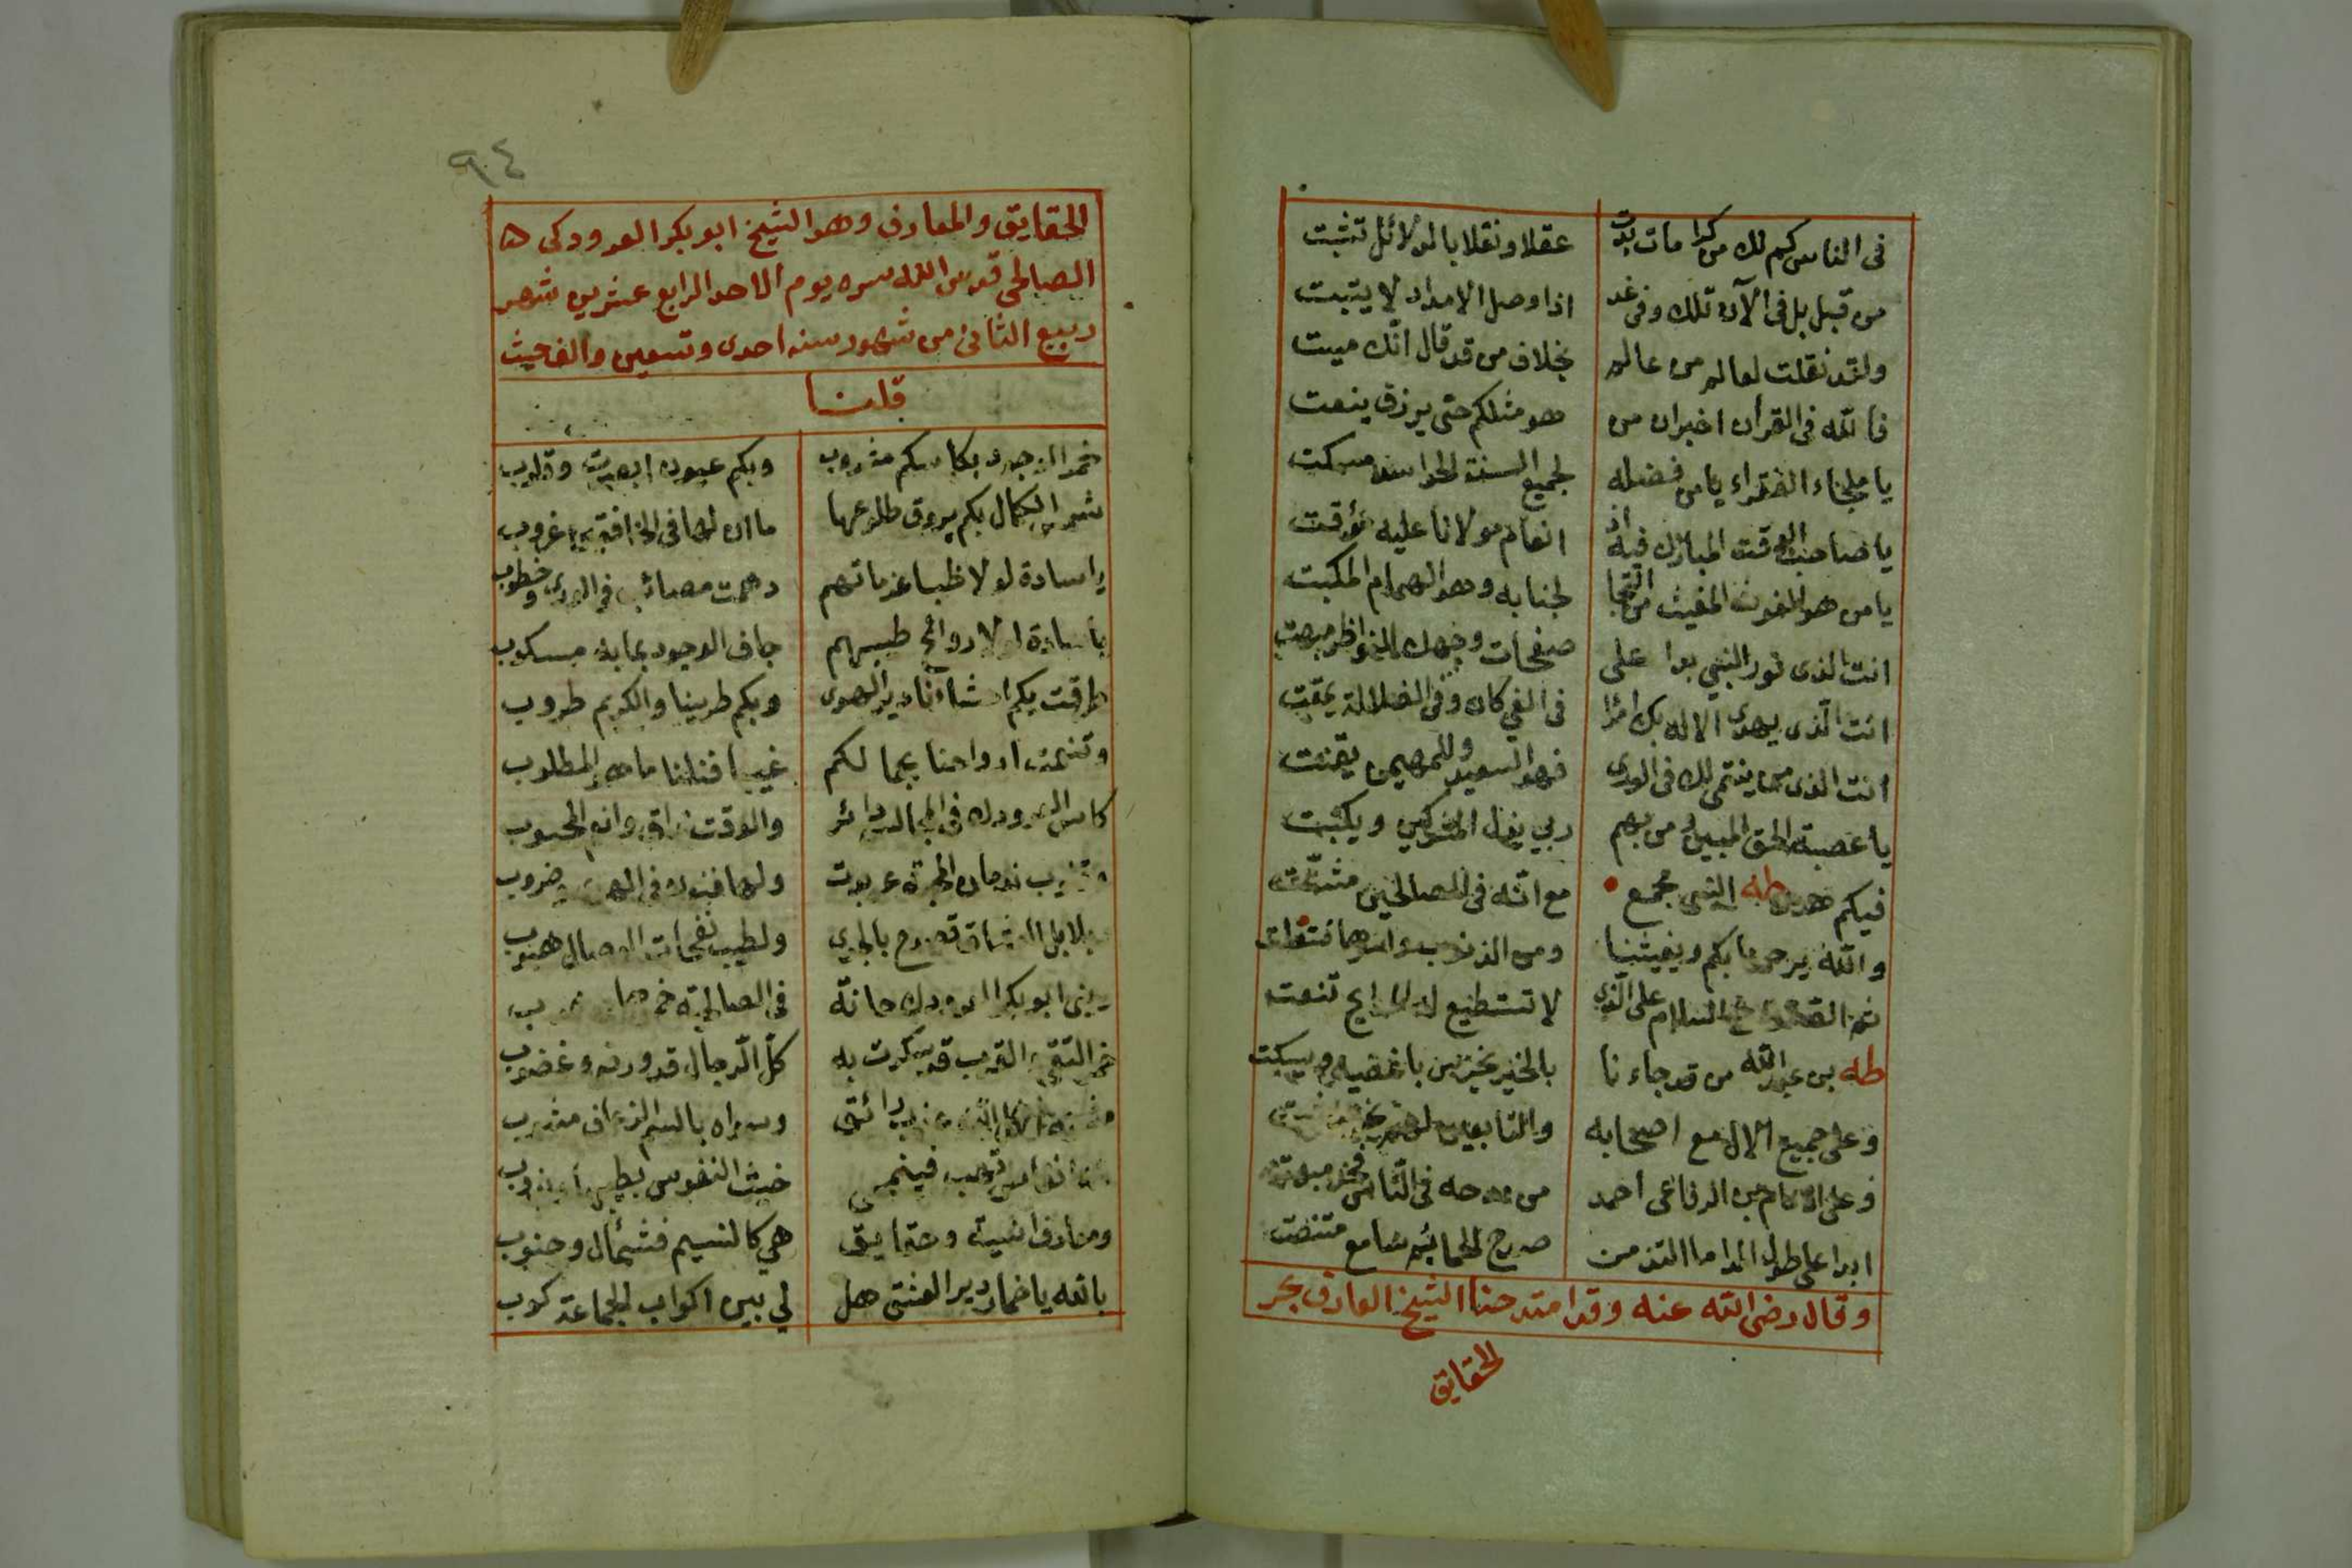 فى الناس كم لك من كرامات بدت عقلا ونقلا بالدلائل تثبت
من قبل بل فى الآن تلك وفى غد اذا وصل الامداد لا يتبت
ولقد نقلت لعالم من عالم بخلاف من قد قال انك ميت
فالله فى القرأن اخبر ان من هو مثلكم حتى يرزق ينعت
يا ملجاء الفقراء يا من فضله لجميع السنة الحواسد مسكت
يا صاحب الوقت المبارك فيه اذ انعام مولانا عليه مؤقت
يا من هو الغوث المغيث من التجا لجنابه وهو الهمام المكبت
انت الذى نور النبي بدا على صفحات وجهك للنواظر مبهت
انت الذى يهدى الاله بك امرًا فى الغي كان وفى الضلالة يمقت
انت الذى من ينتمى لك فى الورى فهو السعيد وللمهيمن يقنت
يا عصبة الحق المبين ومن بهم ربي يغل المشركين ويكبت
فيكم طه النبى مجمع مع انه فى الصالحين مشتت
والله يرحمنا بكم ويغيثنا ومن الذنوب
ثم الصلاة مع السلام على الذى لا تستطيع له المدايح تنعت
طه بن عبد الله من قد جاءنا بالخير يخبر من باغضيه ويسكت
وعلى جميع الال مع اصحابه والتابعين لهم
وعلى الامام بن الرفاعى احمد من مدحه فى الناس
ابدا على طول المدا ما التذ من صدح الحمائم سامع متنصت
وقال رضى الله عنه وقد امتدحنا الشيخ العارف بحر
الحقايق
٩٤
الحقايق والمعارف وهو الشيخ ابو بكر العرودكى
الصالحى قدس الله سره يوم الاحد الرابع عشرين شهر
ربيع الثانى من شهور سنه احدى وتسعين والف حيث
قلنا
خمر الوجود بكاسكم مشروب وبكم عيون ابصرت وقلوب
شمس الكمال بكم يروق طلوعها ما ان لها فى الخافقين غروب
يا سادة لولا ظبا عزماتهم دهمت مصائب فى الورى وخطوب
يا سادة لولا روائح طيبهم جاف الوجود بمابه مسكوب
طرقت بكم احشاءنا دير الهوى وبكم طربنا والكريم طروب
وتنعمت ارواحنا بجمالكم غيبا فنلنا ما هو المطلوب
كاس العرودك فى المجالس دائر والوقت راق وانه المحبوب
ندمان المحبة عربدت ولها فنون فى الهوى وضروب
بلابل العشاق تصدح بالحمى ولطيب نفحات الوصال هبوب
ابو بكر العرودك حانة فى الصالحية
خمر التقى والقرب قد سكرت به كل الرجال قد وردوه وغضوب
رائق وسواه بالسم الزعاف مشوب
فينجلى خبث النفوس
ومعارف انسية وحقايق هي كالنسيم فشمأل وجنوب
بالله يا خمار دير العشق هل لي بين اكواب الجماعة كوب